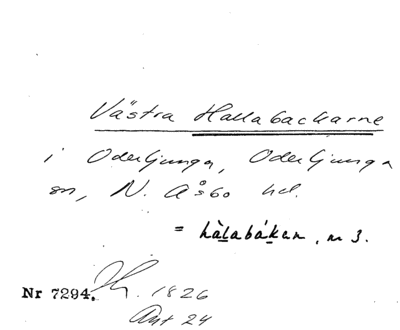 Västra Hallabackarne
i Oderljunga, Oderljunga
sn, N. Åsbo hd.
= hàlabákan, n 3.
Nr 7294. 1826
Ant 24